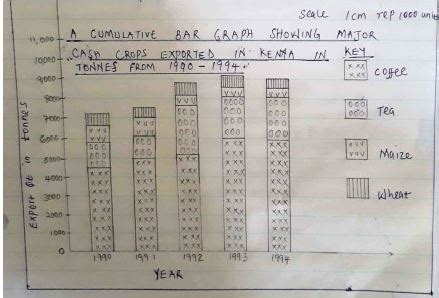 Scale 1cm rep 1000 units
A CUMULATIVE BAR GRAPH SHOWING MAJOR
CASH CROPS EXPORTED IN KENYA IN
TONNES FROM 1990 - 1994.
KEY
Coffee
Tea
Maize
Wheat
11,000
10,000
9,000
8000
7000
6000
5000
4000
3000
2000
1000
0
Export Qt in tonnes
1990 1991 1992 1993 1994
YEAR